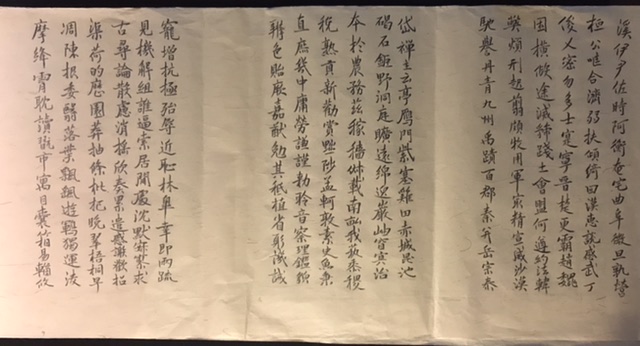 溪伊尹佐時阿衡奄宅曲阜微旦孰營
桓公匡合濟弱扶傾綺回漢惠說感武丁
俊乂密勿多士寔寧晉楚更霸趙魏
困橫假途滅虢踐土會盟何遵約法韓
弊煩刑起翦頗牧用軍最精宣威沙漠
馳譽丹青九州禹蹟百郡秦并岳宗泰
岱禪主云亭雁門紫塞雞田赤城昆池
碣石鉅野洞庭曠遠綿邈巖岫窅冥治
本於農務茲稼穡俶載南畝我藝黍稷
稅熟貢新勸賞黜陟孟軻敦素史魚秉
直庶幾中庸勞謙謹勅聆音察理鑑貌
辨色貽厥嘉猷勉其祗植省躬譏誡
寵增抗極殆辱近恥林皋幸即兩疏
見機解組誰逼索居閒處沈默寂寥求
古尋論散慮逍遙欣奏累遣慼謝歡招
渠荷的歷園莽抽條枇杷晚翠梧桐早
凋陳根委翳落葉飄颻遊鵾獨運凌
摩絳霄耽讀翫市寓目囊箱易輶攸